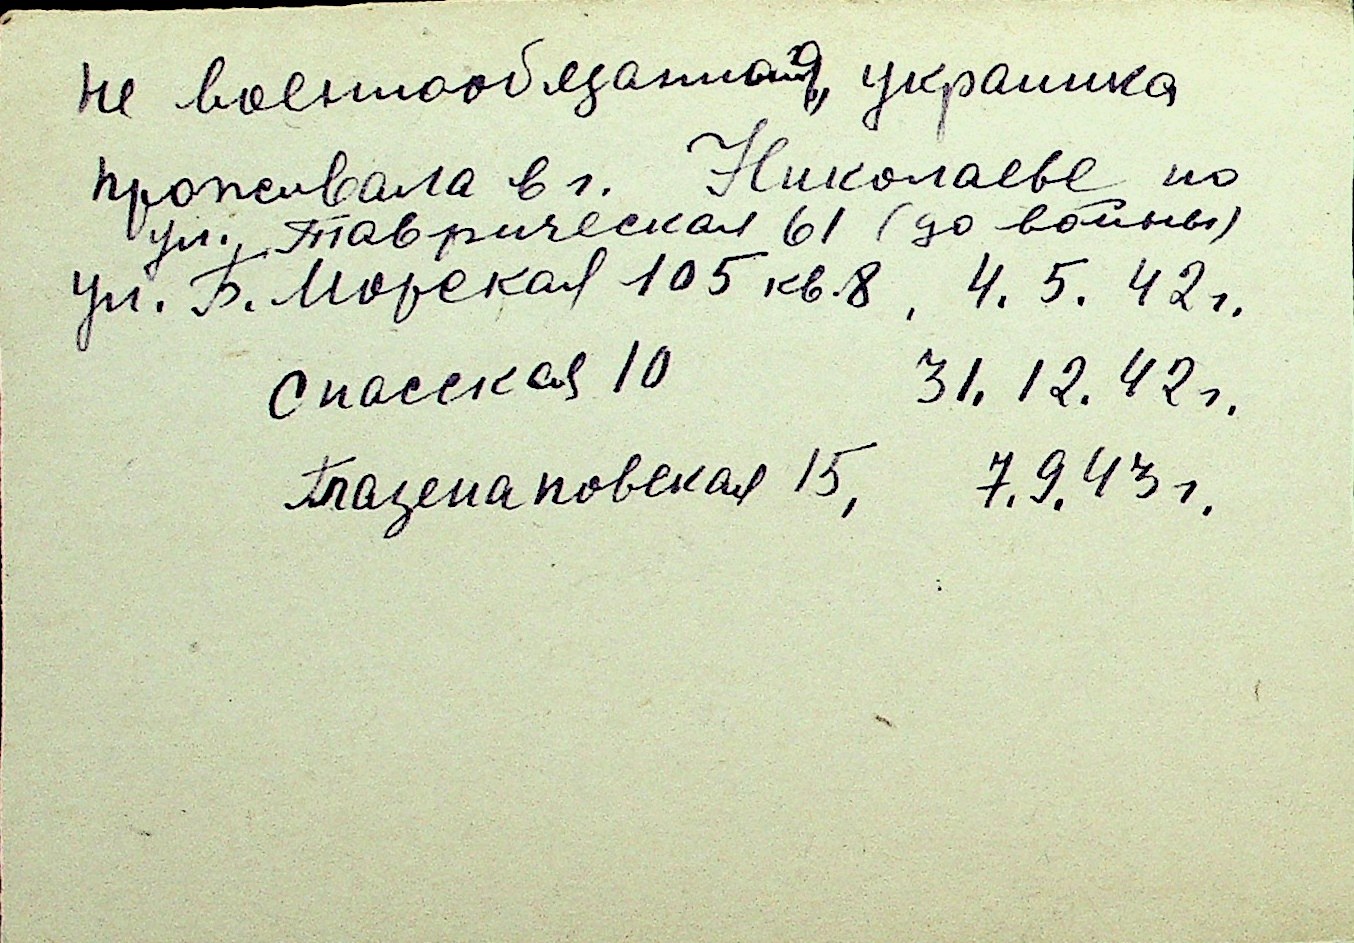 не военнообязанная, украинка
проживала в г. Николаеве по
ул. Таврическая 61 (до войны)
ул. Б. Морская 105 кв. 8, 4. 5. 42 г.
Спасская 10 31. 12. 42 г.
Глазенаповская 15, 7. 9. 43 г.